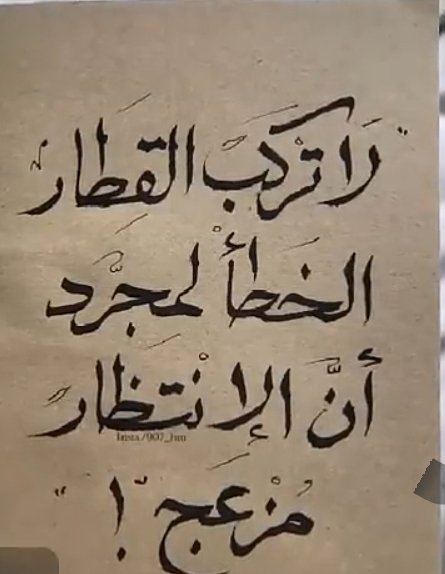 " لَا تَرْكَب القَطار
الخَطأ لمجرَّد
أنَّ الإنْتظار
Insta/907_hm
مُزعج ! "